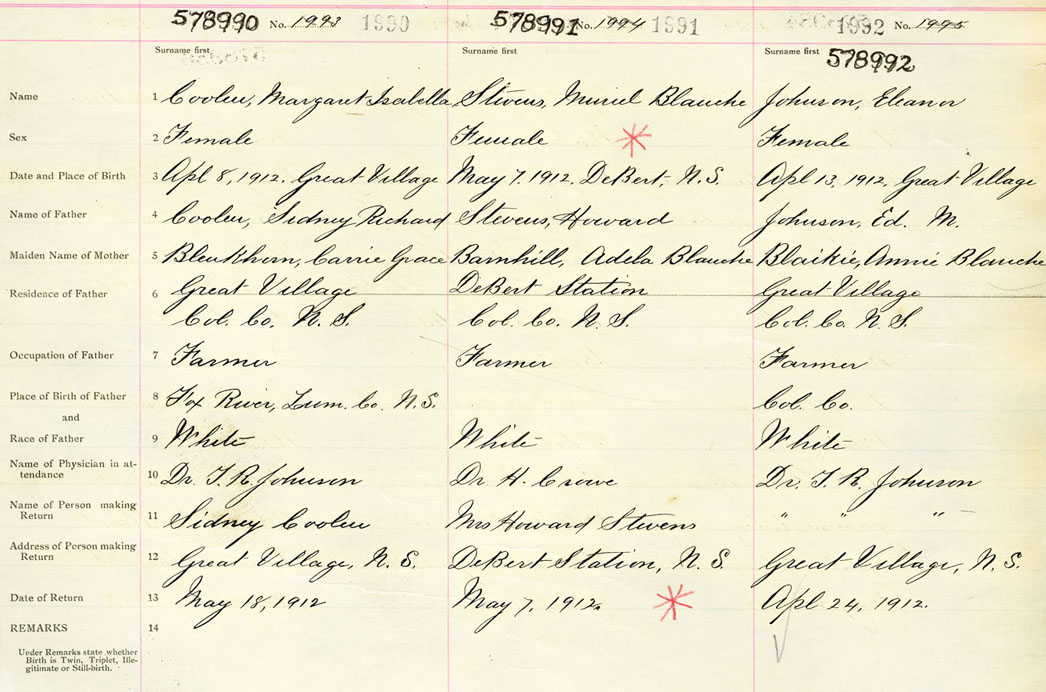 578990 No. 1993 1990 578991 No. 1994 1991 1992 No. 1995
Surname first Surname first Surname first 578992
Name 1 Coolen, Margaret Isabella Stevens, Muriel Blanche Johnson, Eleanor
Sex 2 Female Female Female
Date and Place of Birth 3 Apl 8, 1912. Great Village May 7. 1912, DeBert, N.S. Apl 13, 1912, Great Village
Name of Father 4 Coolen, Sidney Richard Stevens, Howard Johnson, Ed. M.
Maiden Name of Mother 5 Blenkhorn, Carrie Grace Barnhill, Adela Blanche Blaikie, Annie Blanche
Residence of Father 6 Great Village DeBert Station Great Village
Col. Co. N.S. Col. Co. N.S. Col. Co. N.S.
Occupation of Father 7 Farmer Farmer Farmer
Place of Birth of Father 8 Fox River, Cum. Co. N.S. Col. Co.
and
Race of Father 9 White White White
Name of Physician in at-
tendance 10 Dr. T. R. Johnson Dr H. Crowe Dr. T. R. Johnson
Name of Person making
Return 11 Sidney Coolen Mrs Howard Stevens " " "
Address of Person making
Return 12 Great Village, N.S. DeBert Station, N.S. Great Village, N.S.
Date of Return 13 May 18, 1912 May 7, 1912. Apl 24, 1912.
REMARKS 14
Under Remarks state whether
Birth is Twin, Triplet, Ille-
gitimate or Still-birth.